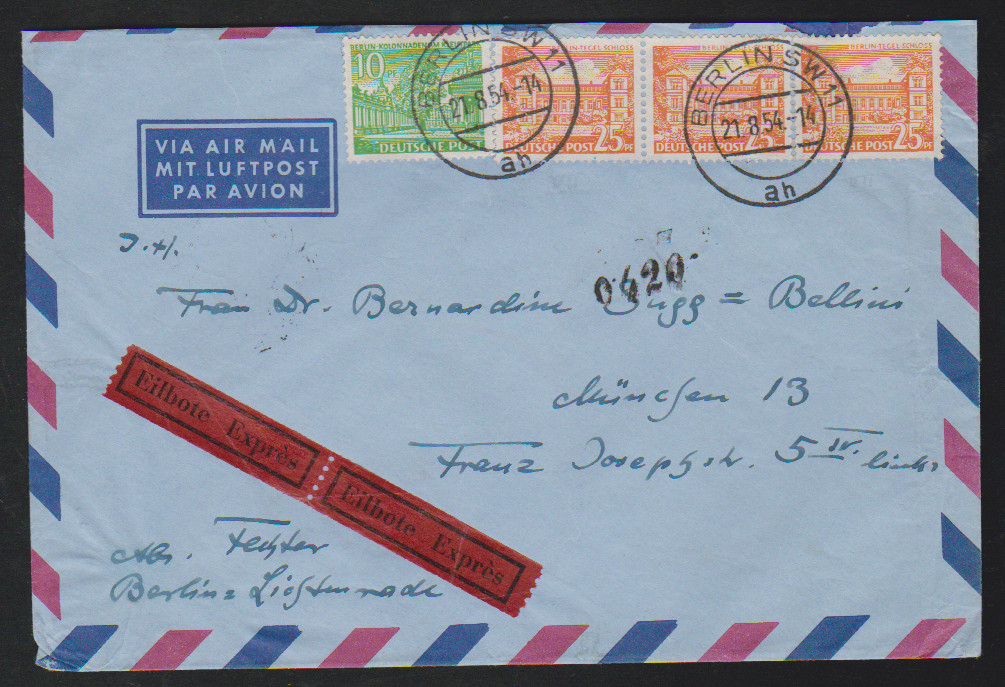 BERLIN-KOLONNADEN AM KLEISTP
10
DEUTSCHE POST
25 PF
DEUTSCHE POST
BERLIN-TEGEL·SCHLOSS
25 PF
DEUTSCHE POST
BERLIN-TEGEL·SCHLOSS
25 PF
DEUTSCHE POST
BERLIN SW 11
21.8.54.-14
ah
BERLIN SW 11
21.8.54.-14
ah
VIA AIR MAIL
MIT LUFTPOST
PAR AVION
0420
Frau Dr. Bernardine Bugg = Bellini
München 13
Franz Josephstr. 5 IV. links
Eilbote Exprès
Eilbote Exprès
Abs. Fechter
Berlin = Lichtenrade